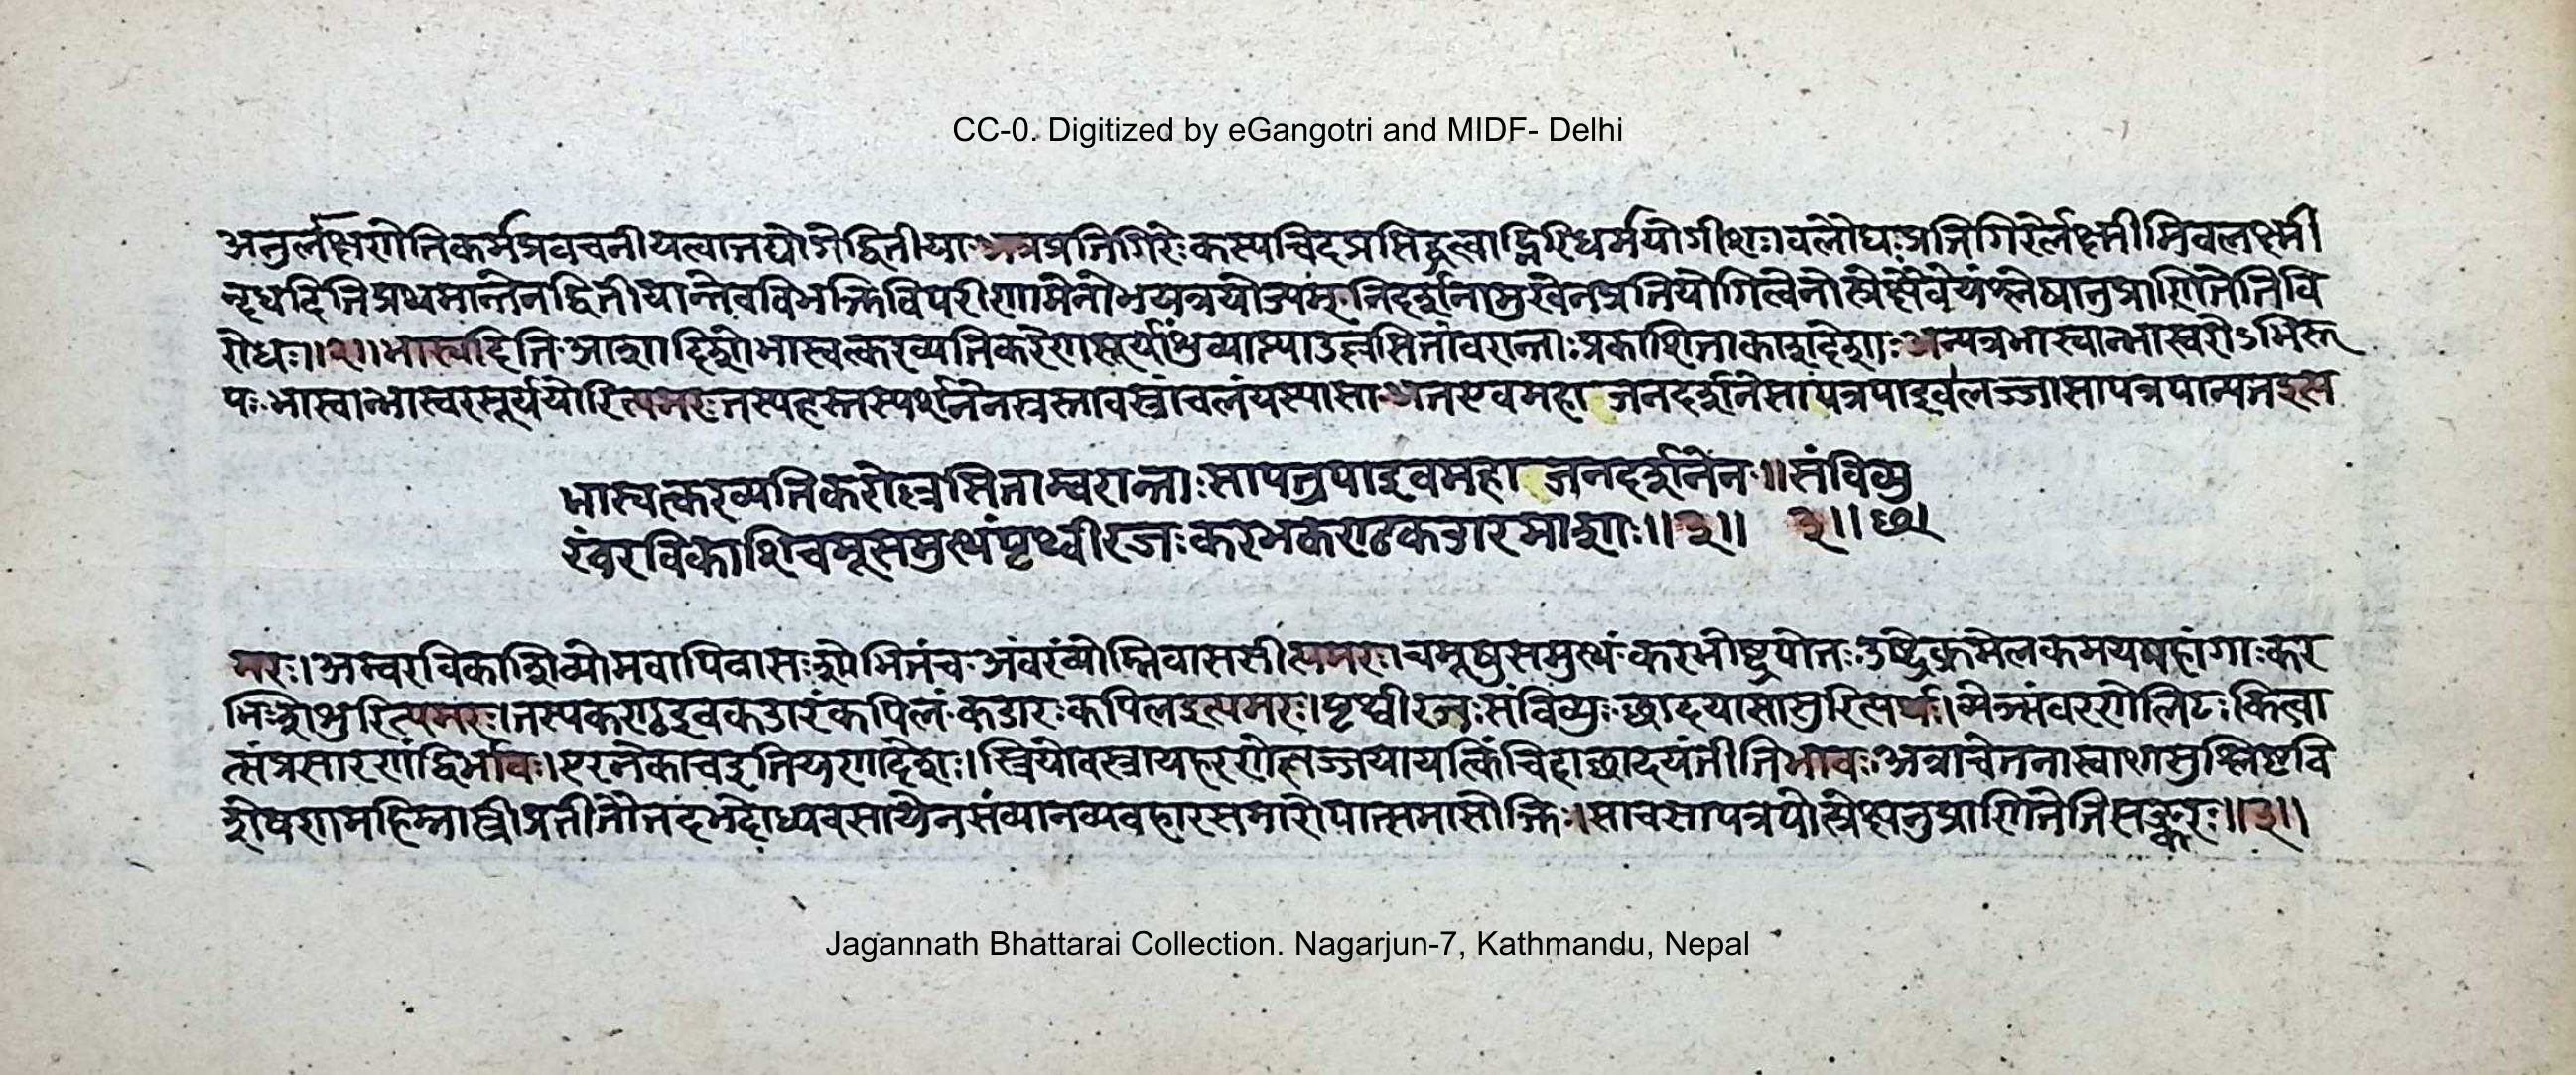 CC-0. Digitized by eGangotri and MIDF- Delhi
अनुर्लक्षणेतिकर्मप्रवचनीयत्वात्तद्योगेद्वितीयाअत्रप्रतिगिरेःकस्यचिदप्रसिद्धत्वाद्गिरिधर्मयोगीशःबलौघःप्रतिगिरेर्लक्ष्मीमिवलक्ष्मीं
न्दधदितिप्रथमान्तेनद्वितीयान्तेवविभक्तिविपरीणामेनोभयत्रयोज्यम्
रोधः॥२॥भास्वदिति आशादिशोभास्वत्करव्यतिकरेणसूर्यांशुव्याप्त्याउल्लसितांवरान्ताःप्रकाशिताकाशदेशाःअन्यत्रभास्वान्भास्वरोऽभिरू
पःभास्वान्भास्वरसूर्ययोरित्यमरःतस्यहस्तस्पर्शनेनस्त्रस्तावस्त्रांचलंयस्यासा अतएवमहाजनदर्शनेसापत्रपाइवलज्जासापत्रपान्यतइत्य
भास्वत्करव्यतिकरोल्लसिताम्बरान्ताःसापत्रपाइवमहाजनदर्शनेन॥संविव्यु
रंबरविकाशिचमूसमुत्थंपृथ्वीरजःकरभकण्ठकडारमाशाः॥३॥ ३॥छ॥
मरः।अम्बरविकाशिव्योमवापिवासःशोभितंच अंबरंव्योम्निवाससीत्यमरः।चमूषुसमुत्थं करभोष्ट्रपोतः उष्ट्रेक्रमेलकमयमहांगाःकर
भिःशिशुरित्यमरः।तस्यकण्ठइवकडारंकपिलं कडारःकपिलइत्यमरः।पृथ्वीरजःसंविव्युःछादयामासुरित्यर्थः।व्येञ्संवरणेलिटःकित्वा
त्संप्रसारणंद्विर्भावः।एरनेकाचइतियणादेशः।स्त्रियोवस्त्रापहरणेलज्जयायत्किंचिदाछादयंतीतिभावःअत्राचेतनास्वाशासुश्लिष्टवि
शेषणमहिम्नास्त्रीप्रतीतौतदभेदाध्यवसायेनसंव्यानव्यवहारसमारोपात्समासोक्तिः।साचसापत्रपोत्प्रेक्षानुप्राणितेतिसङ्करः॥३॥
Jagannath Bhattarai Collection. Nagarjun-7, Kathmandu, Nepal